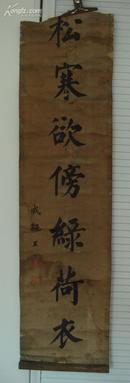 松寒欲傍綠荷衣
成親王